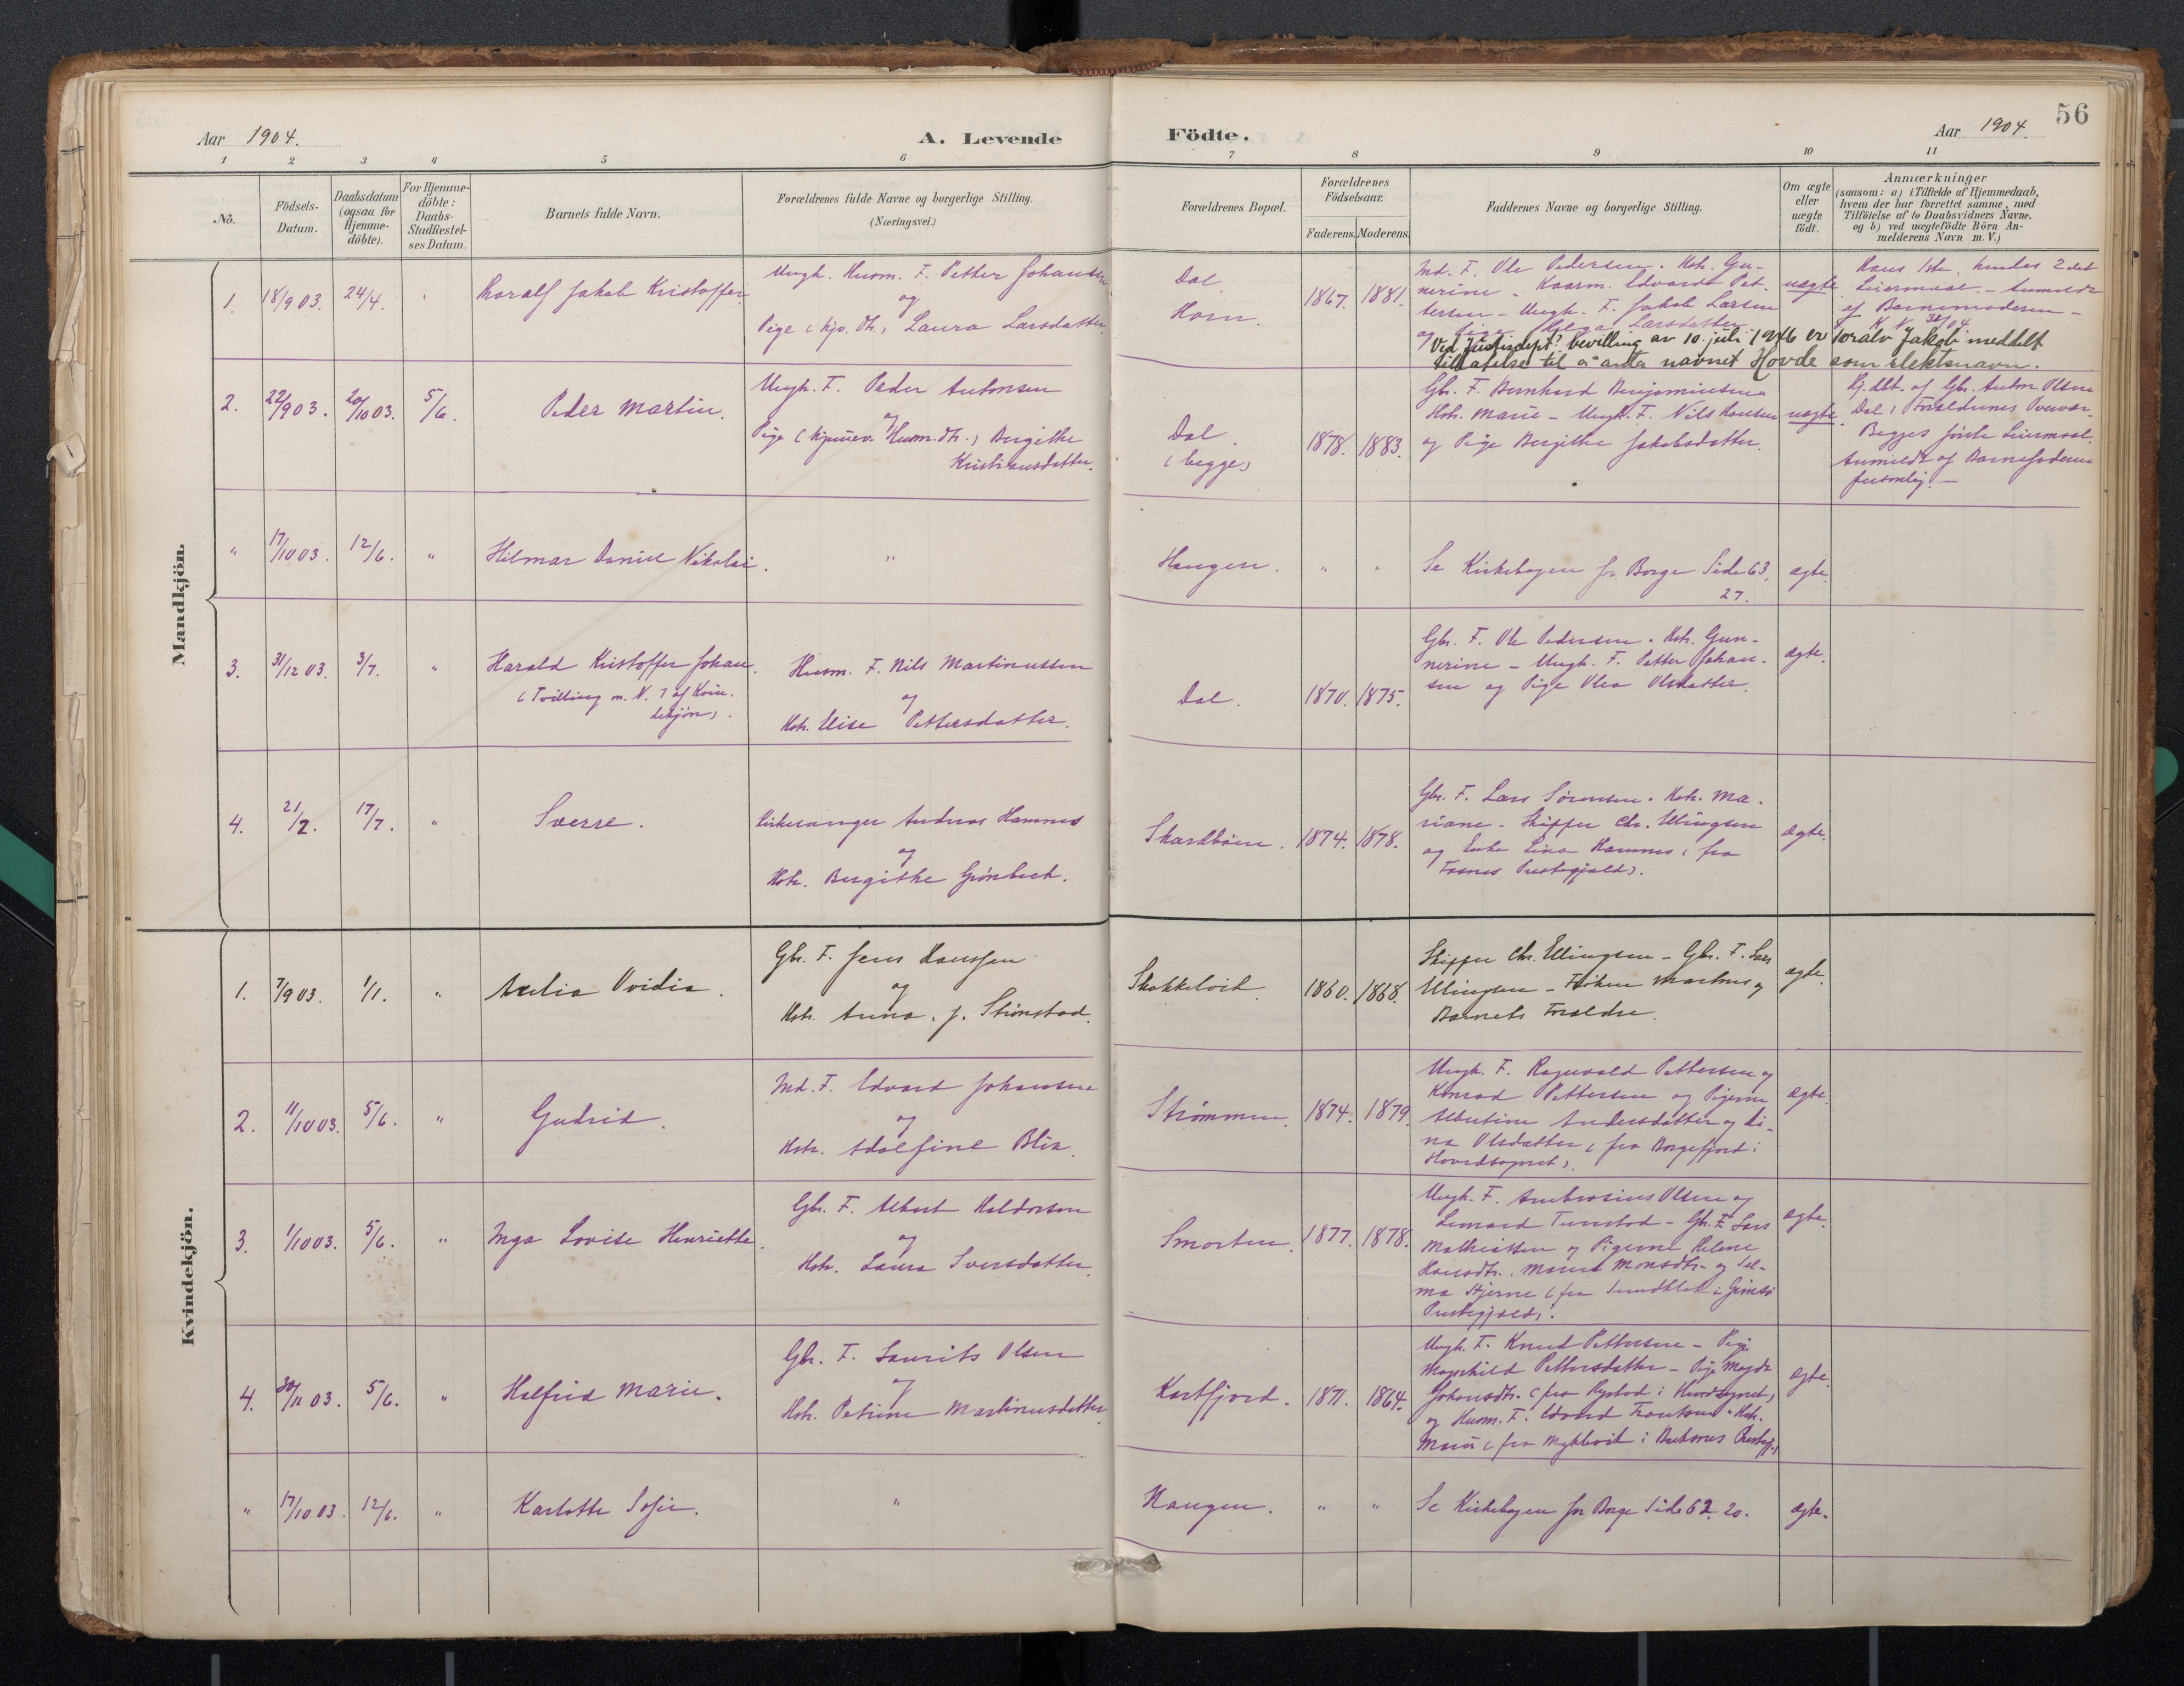 56
Aar 1904.
A. Levende Födte.
Aar 1904.
1 2 3 4 5 6 7 8 9 10 11
No.
Födsels-
Datum.
Daabsdatum
(ogsaa for
Hjemme-
döbte).
For Hjemme-
döbte:
Daabs-
Stadfæstel-
ses Datum.
Barnets fulde Navn.
Forældrenes fulde Navne og borgerlige Stilling.
(Næringsvei.)
Forældrenes Bopæl.
Forældrenes
Födselsaar.
Faderens. Moderens.
Faddernes Navne og borgerlige Stilling.
Om ægte
eller
uægte
födt.
Anmærkninger
(saasom: a) i Tilfælde af Hjemmedaab,
hvem der har forrettet samme, med
Tilföielse af to Daabsvidners Navne.
og b) ved uægtefödte Börn An-
melderens Navn m. V.)
Mandkjön.
1. 18/9 03. 24/4. "
Thoralf Jakob Kristoffer.
Ungk. Husm. F. Petter Johansen
og
Pige (hjv. Dtr.) Laura Larsdatter.
Dal.
Horn.
1867. 1881.
Md. F. Ole Pedersen. Hstr. Gu-
nerine - Kaarm. Edvardt Pet-
tersen - Ungk. F. Jakob Larsen
og Pige Larsdatter
uægte
Hans 1ste, hendes 2det
Leiermaal. - Anmeldt
af Barnemoderen -
Ved Justisdept! bevilling av 10. juli 1946 er Toralv Jakob meddelt
tillatelse til å anta navnet Hovde som slektsnavn.
2. 22/9 03. 20/10 03. 5/6.
Peder Martin.
Ungk. F. Peder Antonsen
og
Pige (hjemmev. Husm. dtr.) Bergithe
Kristiansdatter.
Dal.
(begge)
1878. 1883.
Gbr. F. Bernhard Benjaminsen
Hstr. Marie - Ungk. F. Nils Hansen
og Pige Bergithe Jakobsdatter.
uægte.
Hj. dbt. af Gbr. Anton Olsen
Dal i Forældrenes Overvær.
Begges første Leiermaal.
Anmeldt af Barnefaderen
personlig. -
" 17/10 03. 12/6. "
Hilmar Daniel Nikolai.
"
Haugen. " "
Se Kirkebogen for Borge Side 63,
27.
ægte.
3. 31/12 03. 3/7. "
Harald Kristoffer Johan.
(Tvilling m. N. 7 af Kvin-
dekjøn).
Husm. F. Nils Martinussen
og
Hstr. Elise Pettersdatter.
Dal.
1870. 1875.
Gbr. F. Ole Pedersen. Hstr. Gun-
nerine - Ungk. F. Petter Johan-
sen og Pige Olea Olsdatter.
ægte.
4. 21/2. 17/7. "
Sverre.
Kirkesanger Andreas Hamnes
og
Hstr. Bergithe Grønbech.
Skardbøen.
1874. 1878.
Gbr. F. Lars Sørensen. Hstr. Ma-
riane - Skipper Chr. Ellingsen
og Enke Lina Hamnes (fra
Fosnes Prestegjeld).
ægte.
Kvindekjön.
1. 7/9 03. 1/1. "
Axelia Ovidia.
Gbr. F. Jens Hanssen
og
Hstr. Anna. f. Stimstad.
Skokkelvik.
1860. 1868.
Skipper Chr. Ellingsen - Gbr. F. Lars
Ellingsen - Frøken Marhus og
Barnets Forældre.
ægte.
2. 11/10 03. 5/6. "
Gudrid.
Md. F. Edvard Johansen
og
Hstr. Adolfine Blix.
Strømmen.
1874. 1879.
Ungk. F. Ragnvald Pettersen og
Konrad Pettersen og Pigerne
Albertine Andersdatter og Li-
na Olsdatter (fra Borgefjord i
Hovedsognet).
ægte.
3. 1/10 03. 5/6. "
Inga Lovise Henriette.
Gbr. F. Albert Haldorsen
og
Hstr. Laura Sversdatter.
Smorten.
1877. 1878.
Ungk. F. Ambrosius Olsen og
Leonard Tunstad - Gbr. F. Lars
Mathiassen og Pigerne Helene
Hansdtr., Monsdtr. og Sel-
ma Stjerne (fra Sundklak i Gimsø
Prestegjeld).
ægte.
4. 30/11 03. 5/6. "
Halfrid Marie.
Gbr. F. Laurits Olsen
og
Hstr. Petrine Martinusdatter.
Kartfjord.
1871. 1864.
Ungk. F. Knud Pettersen - Pige
Magnhild Pettersdatter - Pige Magda
Johansdtr. (fra Rystad i Hovedsognet)
og Husm. F. Edvard Hstr.
Marie (fra Myklevik i Buksnes Prestegj.)
ægte.
" 17/10 03. 12/6. "
Karlotte Sofie.
"
Haugen. " "
Se Kirkebogen for Borge Side 62. 20.
ægte.